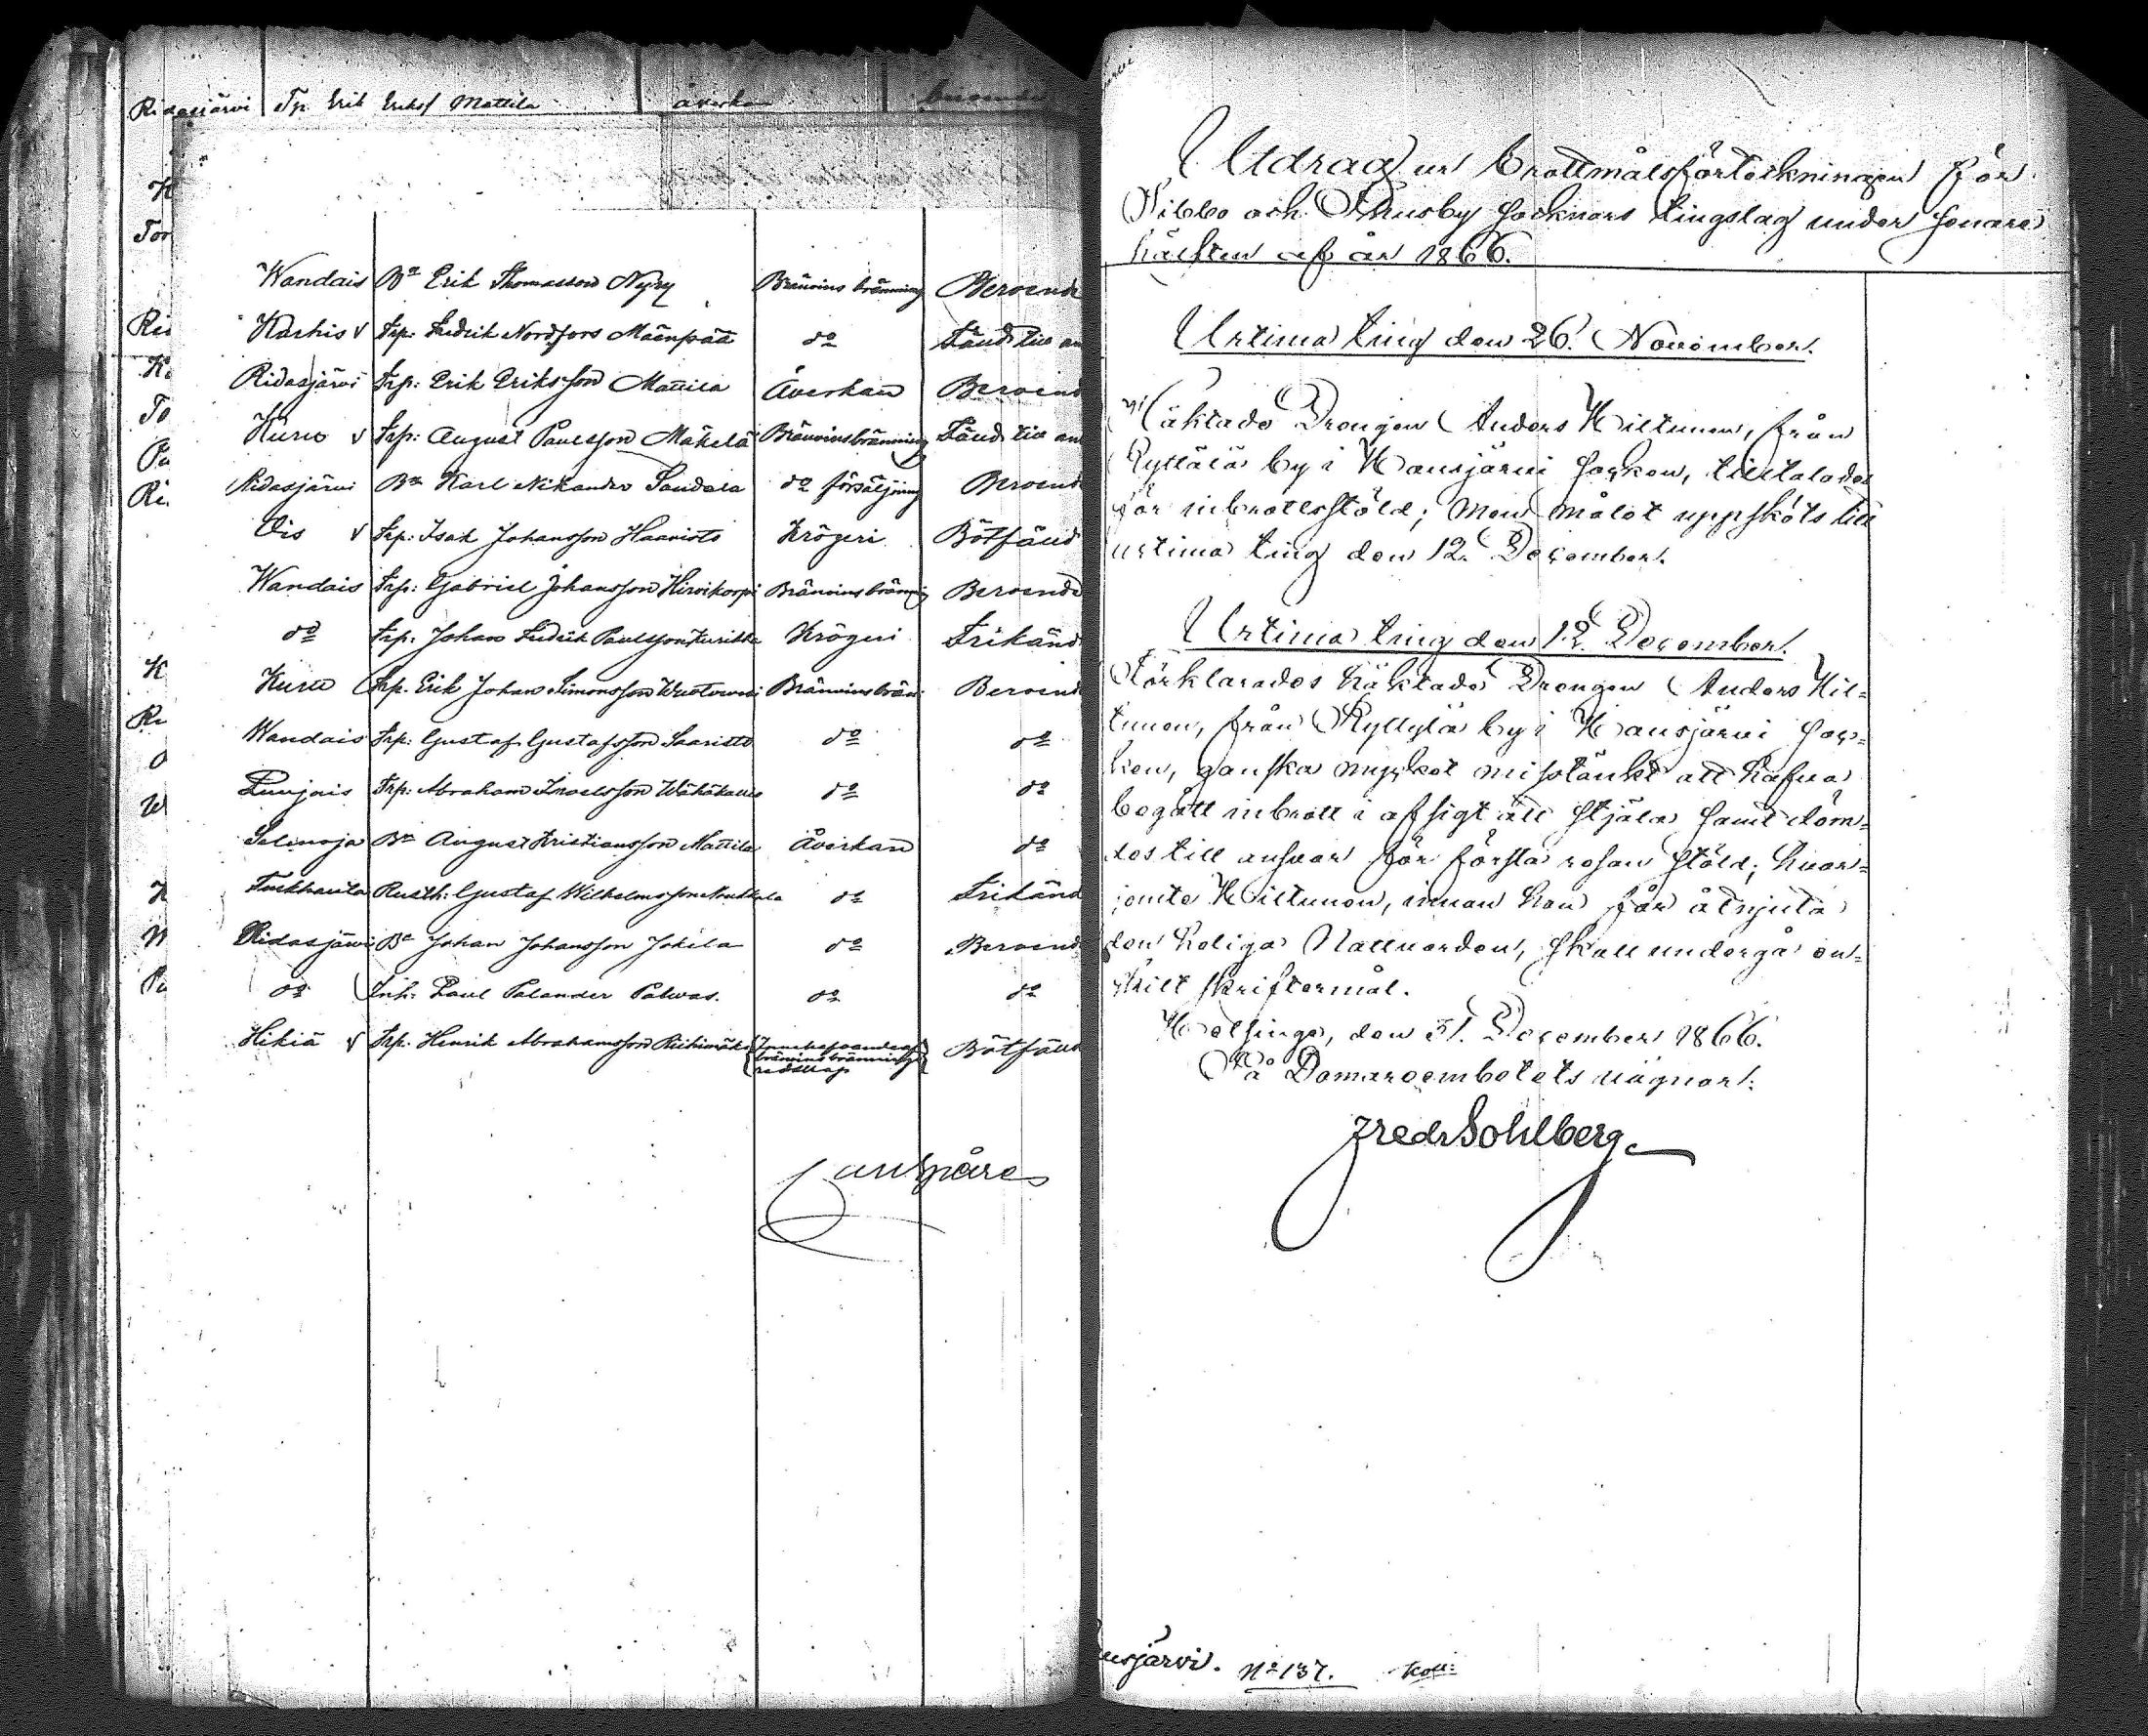 Ridasjärvi Tp. Erik Eriksf Mattila åverkan beroende
Wandais Bn Erik Thomasson Nyry Bränvins bränning Beroende
Karhis v Trp: Fredrik Nordfors Mäenpää do Fänd till an
Ridasjärvi Trp: Erik Eriksson Mattila Åverkan Beroend
Kuru v Trp: August Paulsson Mäkelä Bränvinsbränning Fänd till an
Ridasjärvi Bn Karl Nikander Sandala do försäljning Beroend
Ois v Trp: Isak Johansson Haavisto Krögeri Bötfänd
Wandais Trp: Gabriel Johansson Hirvikorpi Bränvinsbränng Beroende
do Trp. Johan Fredrik Paulsson Kurikka Krögeri Frikänd
Kuru Trp. Erik Johan Simonsson Bränvinsbrän: Beroend
Wandais Trp: Gustaf Gustafsson Saaristo do do
Puujais Trp: Abraham Israelsson Wähäkallio do do
Salinoja Bn August Kristiansson Mattila Åverkan do
Turkhauta Rusth: Gustaf Wilhelmsson Nukkala do Frikänd
Ridasjärvi Bn Johan Johansson Jokela do Beroend
do Inh: Paul Palander Palvas. do do
Hikiä v Trp. Henrik Abrahamsson Riihimäki Innehafvande af bränvinsbrännings redskap Bötfäld
Utdrag ur brottmålsförteckningen för
Sibbo och Thusby socknars tingslag under senare
hälften af år 1866.
Urtima ting den 26. November.
Häktade Drengen Anders Hiltunen, från
Ryttälä by i Hausjärvi socken, tilltalades
för inbrottsstöld; men målet uppsköts till
urtima ting den 12. December.
Urtima ting den 12. December.
Förklarades häktade Drengen Anders Hil=
tunen, från Ryttylä by i Hausjärvi soc=
ken, ganska mycket misstänkt att hafva
begått inbrott i afsigt att stjäla samt döm=
des till ansvar för första resan stöld; hvar=
jemte Hiltunen, innan han får åtnjuta
den heliga Nattvarden, skall undergå en=
skilt skriftermål.
Helsinge, den 31. December 1866.
På Domareembetets vägnar:
Fredr Sohlberg
usjärvi. No 137. Koll: